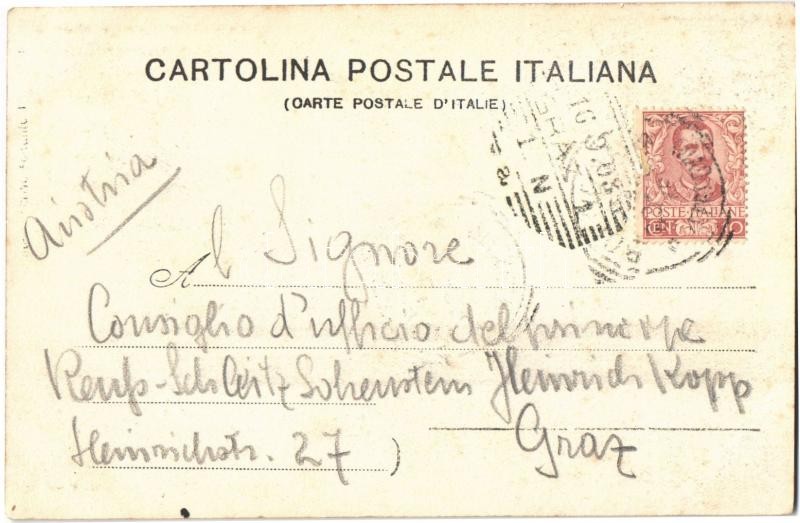 CARTOLINA POSTALE ITALIANA
(CARTE POSTALE D'ITALIE)
POSTE·ITALIANE
CENT. 10
Austria
Al Signore
Consiglio d'ufficio del principe
Reuß-Schleitz Hohenstein Heinrich Kopp
Heinrichstr. 27)
Graz